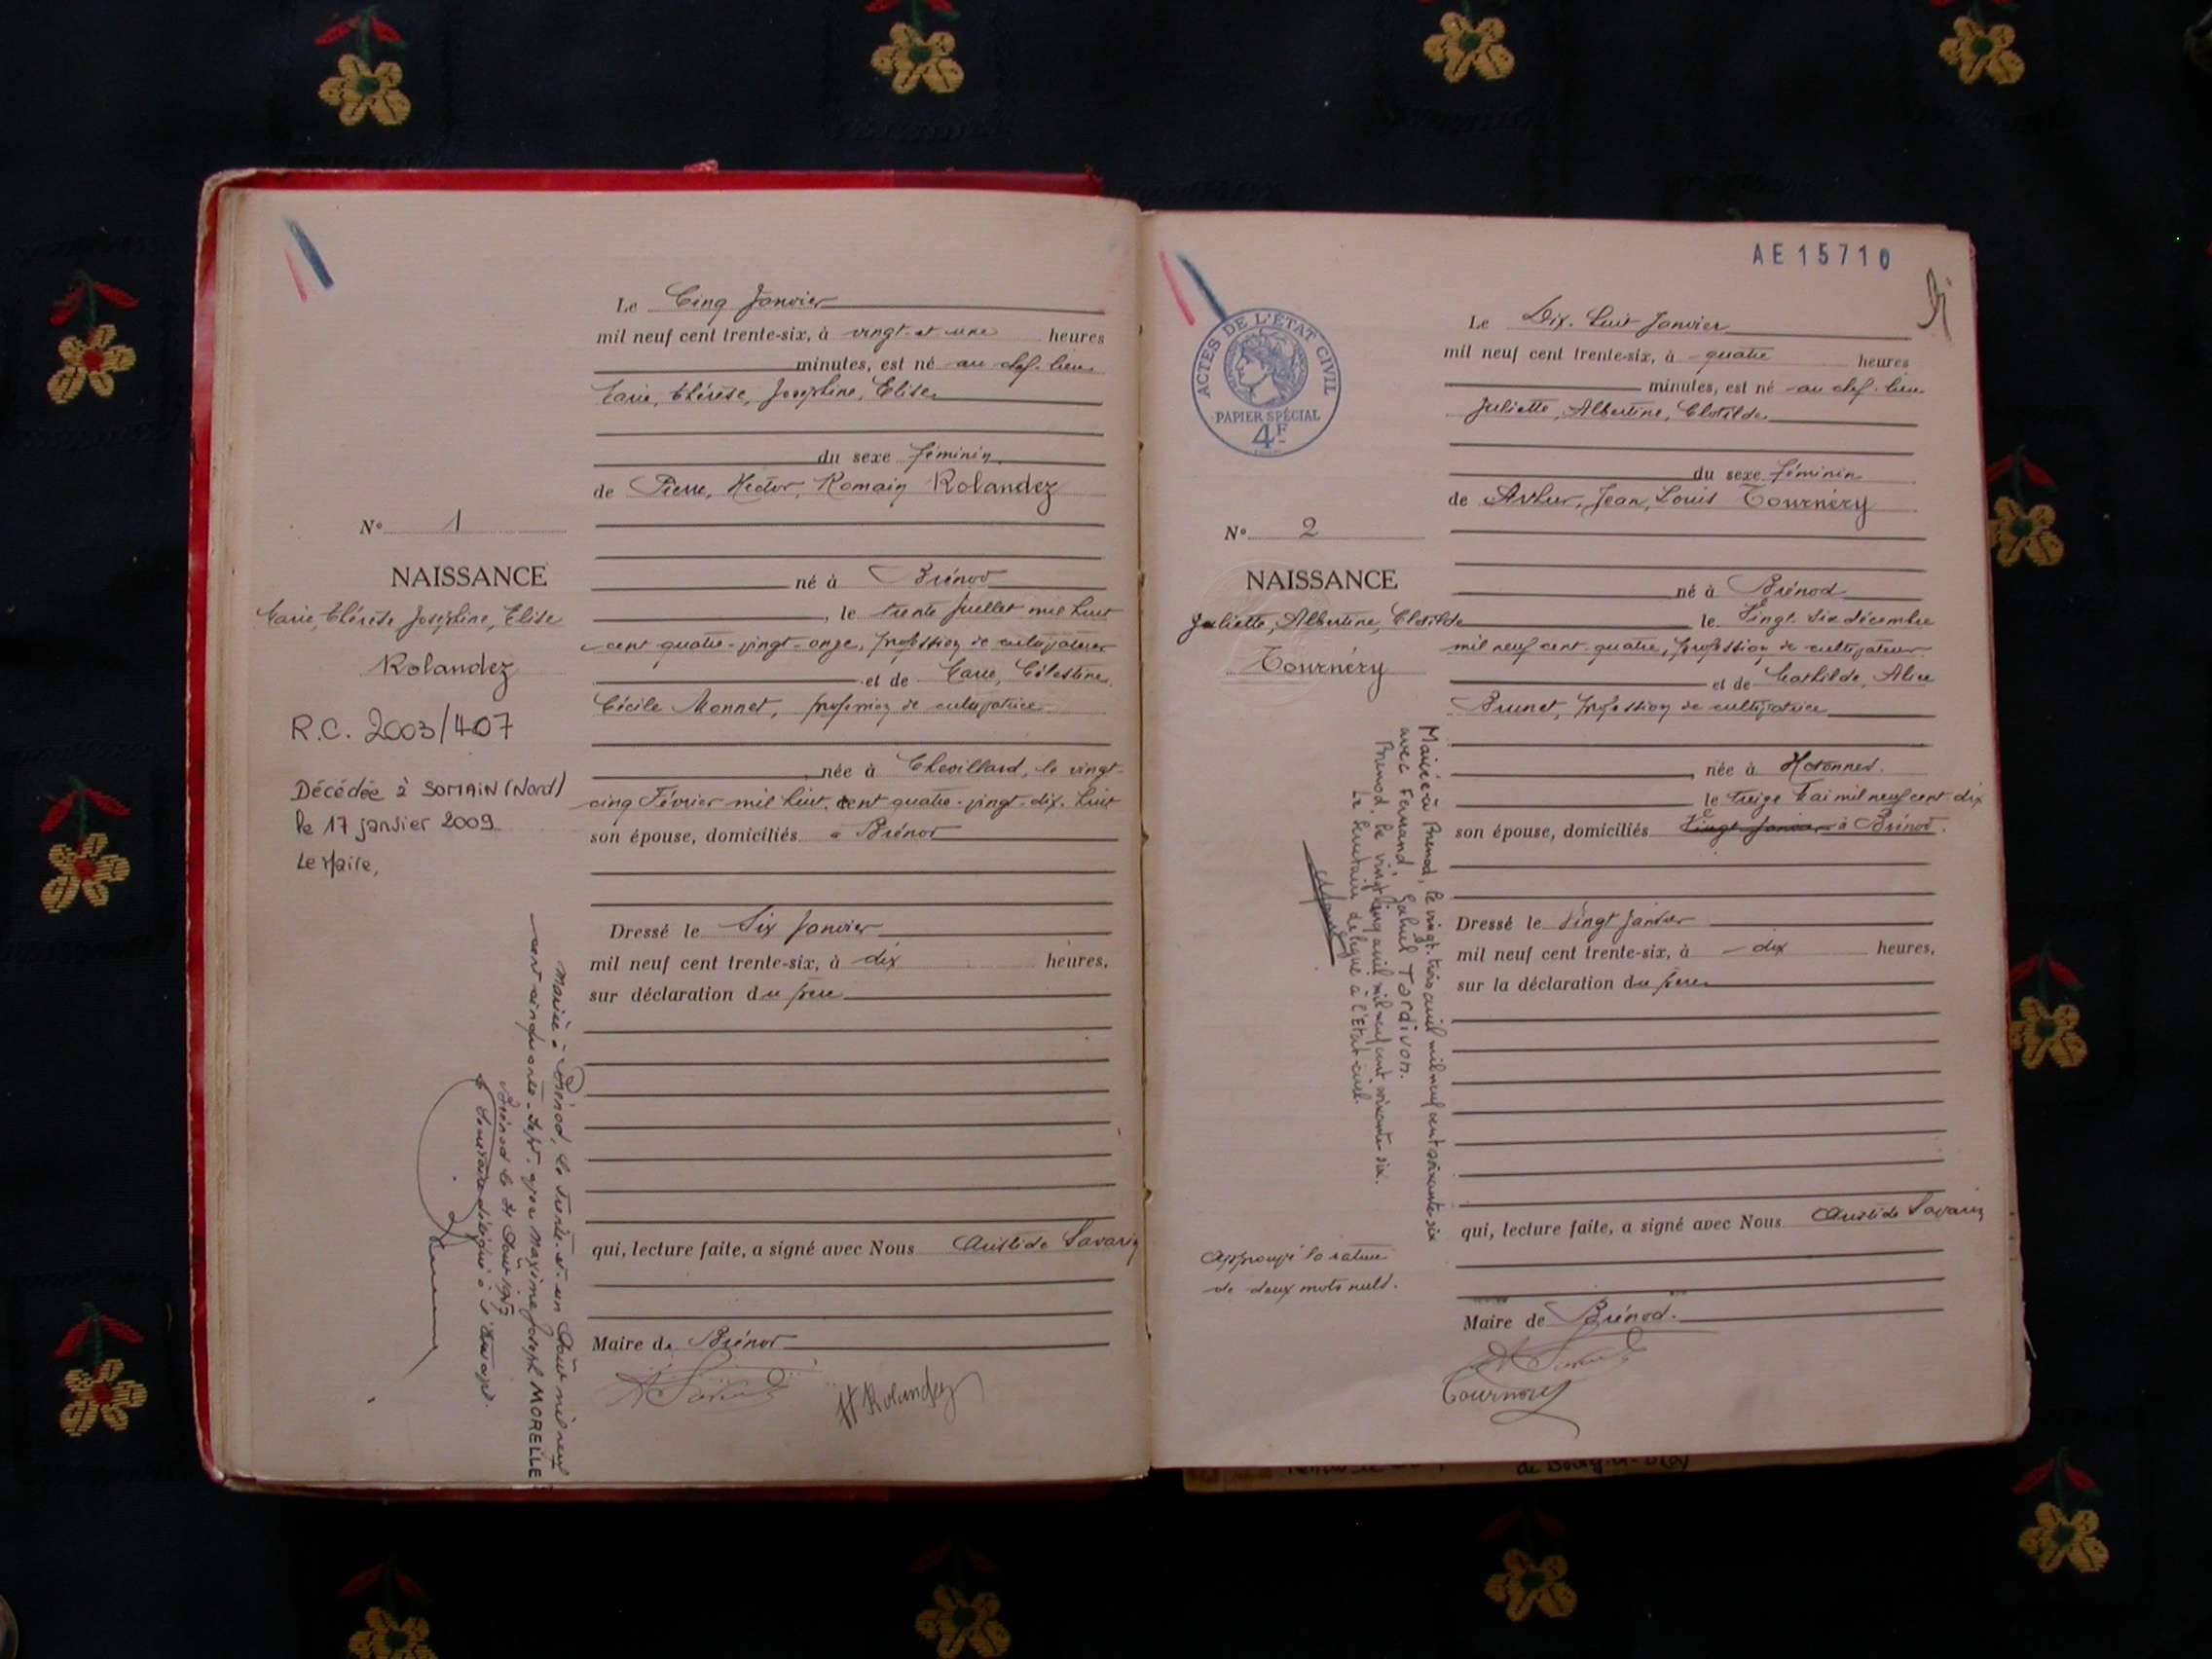 Le Cinq Janvier
mil neuf cent trente-six, à vingt-et une heures
minutes, est né au chef-lieu
Marie, Thérèse, Joséphine, Elise
du sexe féminin
de Pierre, Hector, Romain Rolandez
N° 1
NAISSANCE
Marie, Thérèse Joséphine, Elise
Rolandez
R.C. 2003/407
Décédée à SOMAIN (Nord)
le 17 janvier 2009
Le Maire,
né à Brénod
, le trente Juillet mil huit
cent quatre-vingt-onze, profession de cultivateur
et de Marie, Célestine
Cécile Monnet, profession de cultivatrice
née à Chevillard, le vingt-
cinq Février mil huit cent quatre-vingt-dix-huit
son épouse, domiciliés à Brénod
Dressé le Six Janvier
mil neuf cent trente-six, à dix heures,
sur déclaration du père
qui, lecture faite, a signé avec Nous Aristide Savarin
Maire de Brénod
H Rolandez
Mariée à Brénod, le trente-et-un Août mil neuf
cent cinquante-sept avec Maxime Joseph MORELLE
Brénod le 31 Août 1957
le Secrétaire délégué à l'Etat civil.
AE15710
ACTES DE L'ÉTAT CIVIL
PAPIER SPÉCIAL
4F
Le Dix-huit Janvier
mil neuf cent trente-six, à quatre heures
minutes, est né au chef-lieu
Juliette, Albertine, Clotilde
du sexe féminin
de Arthur, Jean, Louis Tournéry
N° 2
NAISSANCE
Juliette, Albertine, Clotilde
Tournéry
né à Brénod
le Vingt-six décembre
mil neuf cent quatre, profession de cultivateur
et de Mathilde, Alice
Brunet, profession de cultivatrice
née à Hotonnes.
le treize Mai mil neuf cent dix
son épouse, domiciliés Vingt Janvier à Brénod.
Dressé le Vingt Janvier
mil neuf cent trente-six, à dix heures,
sur la déclaration du père
qui, lecture faite, a signé avec Nous Aristide Savarin
Maire de Brénod.
Tournery
Mariée à Brénod, le vingt-trois avril mil neuf cent soixante-six
avec Fernand, Gabriel Tardivon.
Brénod, le vingt cinq avril mil neuf cent soixante-six.
Le Secrétaire délégué à l'Etat-civil.
Approuvé la rature
de deux mots nuls.